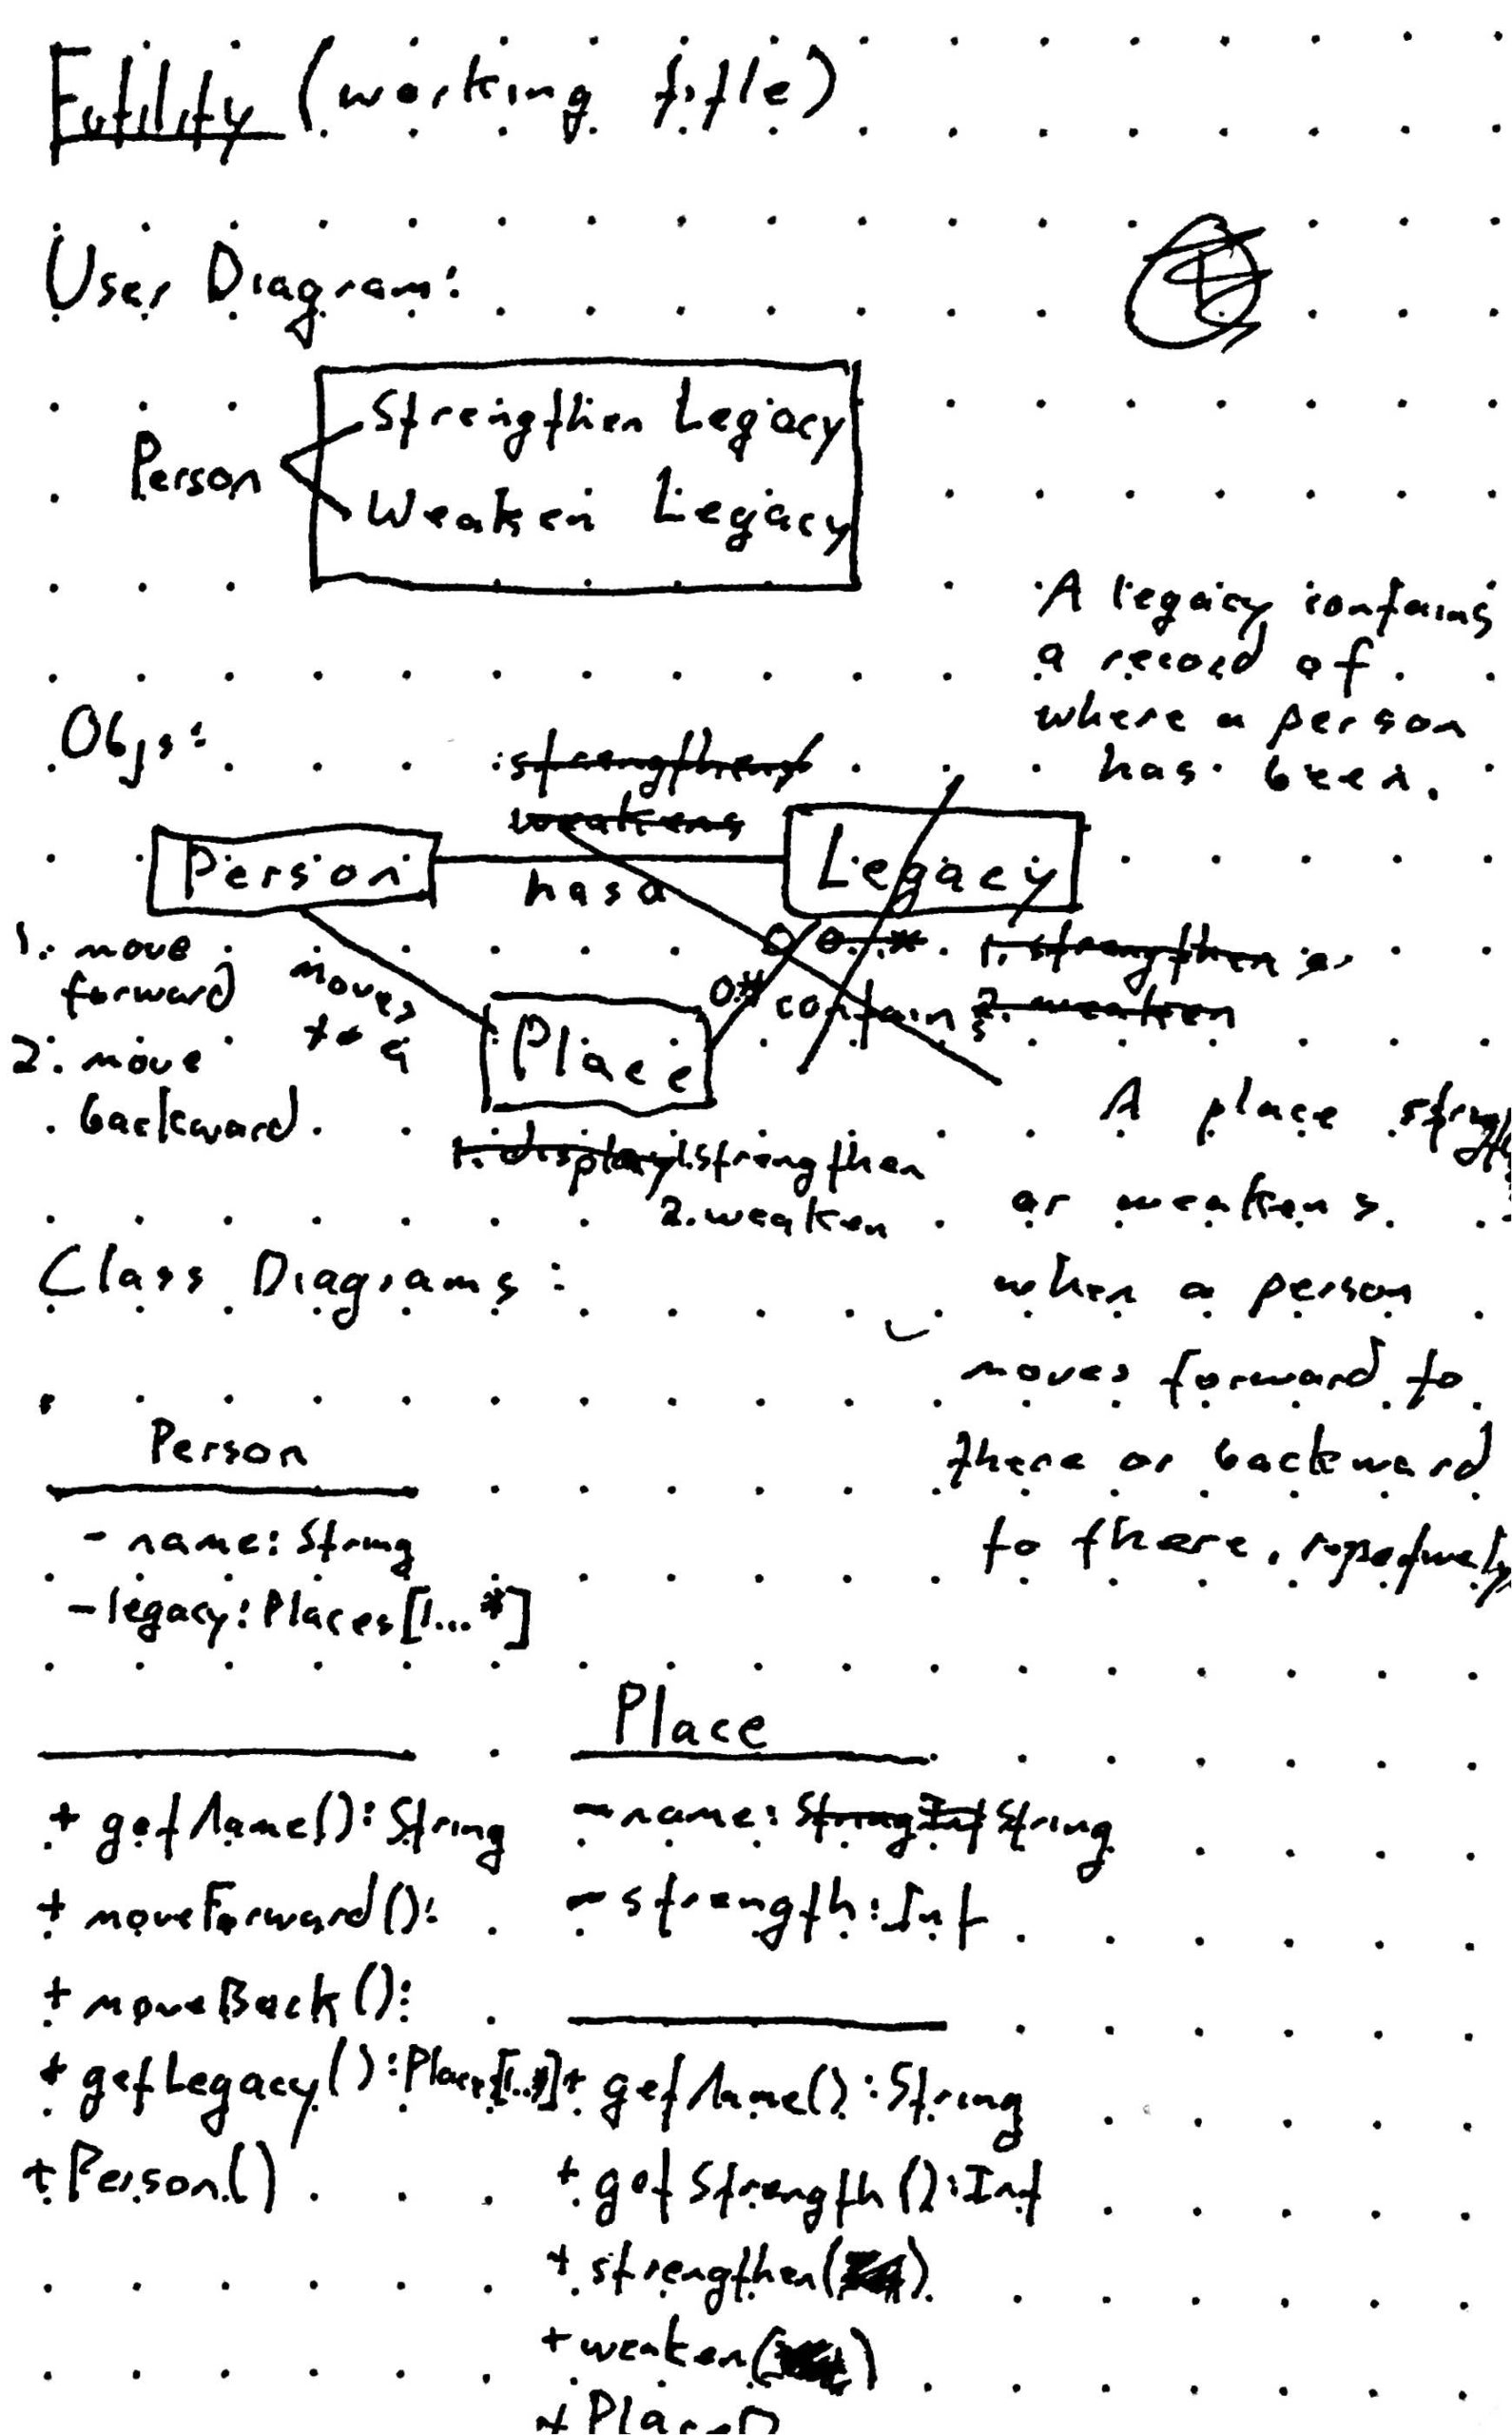 Futility (working title)
User Diagram:
Person
Strengthen Legacy
Weaken Legacy
A legacy contains
a record of
where a person
has been.
Objs:
strengthens
weakens
Person
has a
Legacy
1. move
forward
2. move
backward
moves
to a
Place
0..*
0*
contains
1. strengthen
2. weaken
1. display
1. strengthen
2. weaken
A place
or weakens
when a person
moves forward to
there or backward
to there,
Class Diagrams:
Person
- name: String
- legacy: Places[1...*]
+ getName(): String
+ moveForward():
+ moveBack():
+ getLegacy(): Places[1..*]
+ Person()
Place
- name: String Int String
- strength: Int
+ getName(): String
+ getStrength(): Int
+ strengthen()
+ weaken()
+ Place()